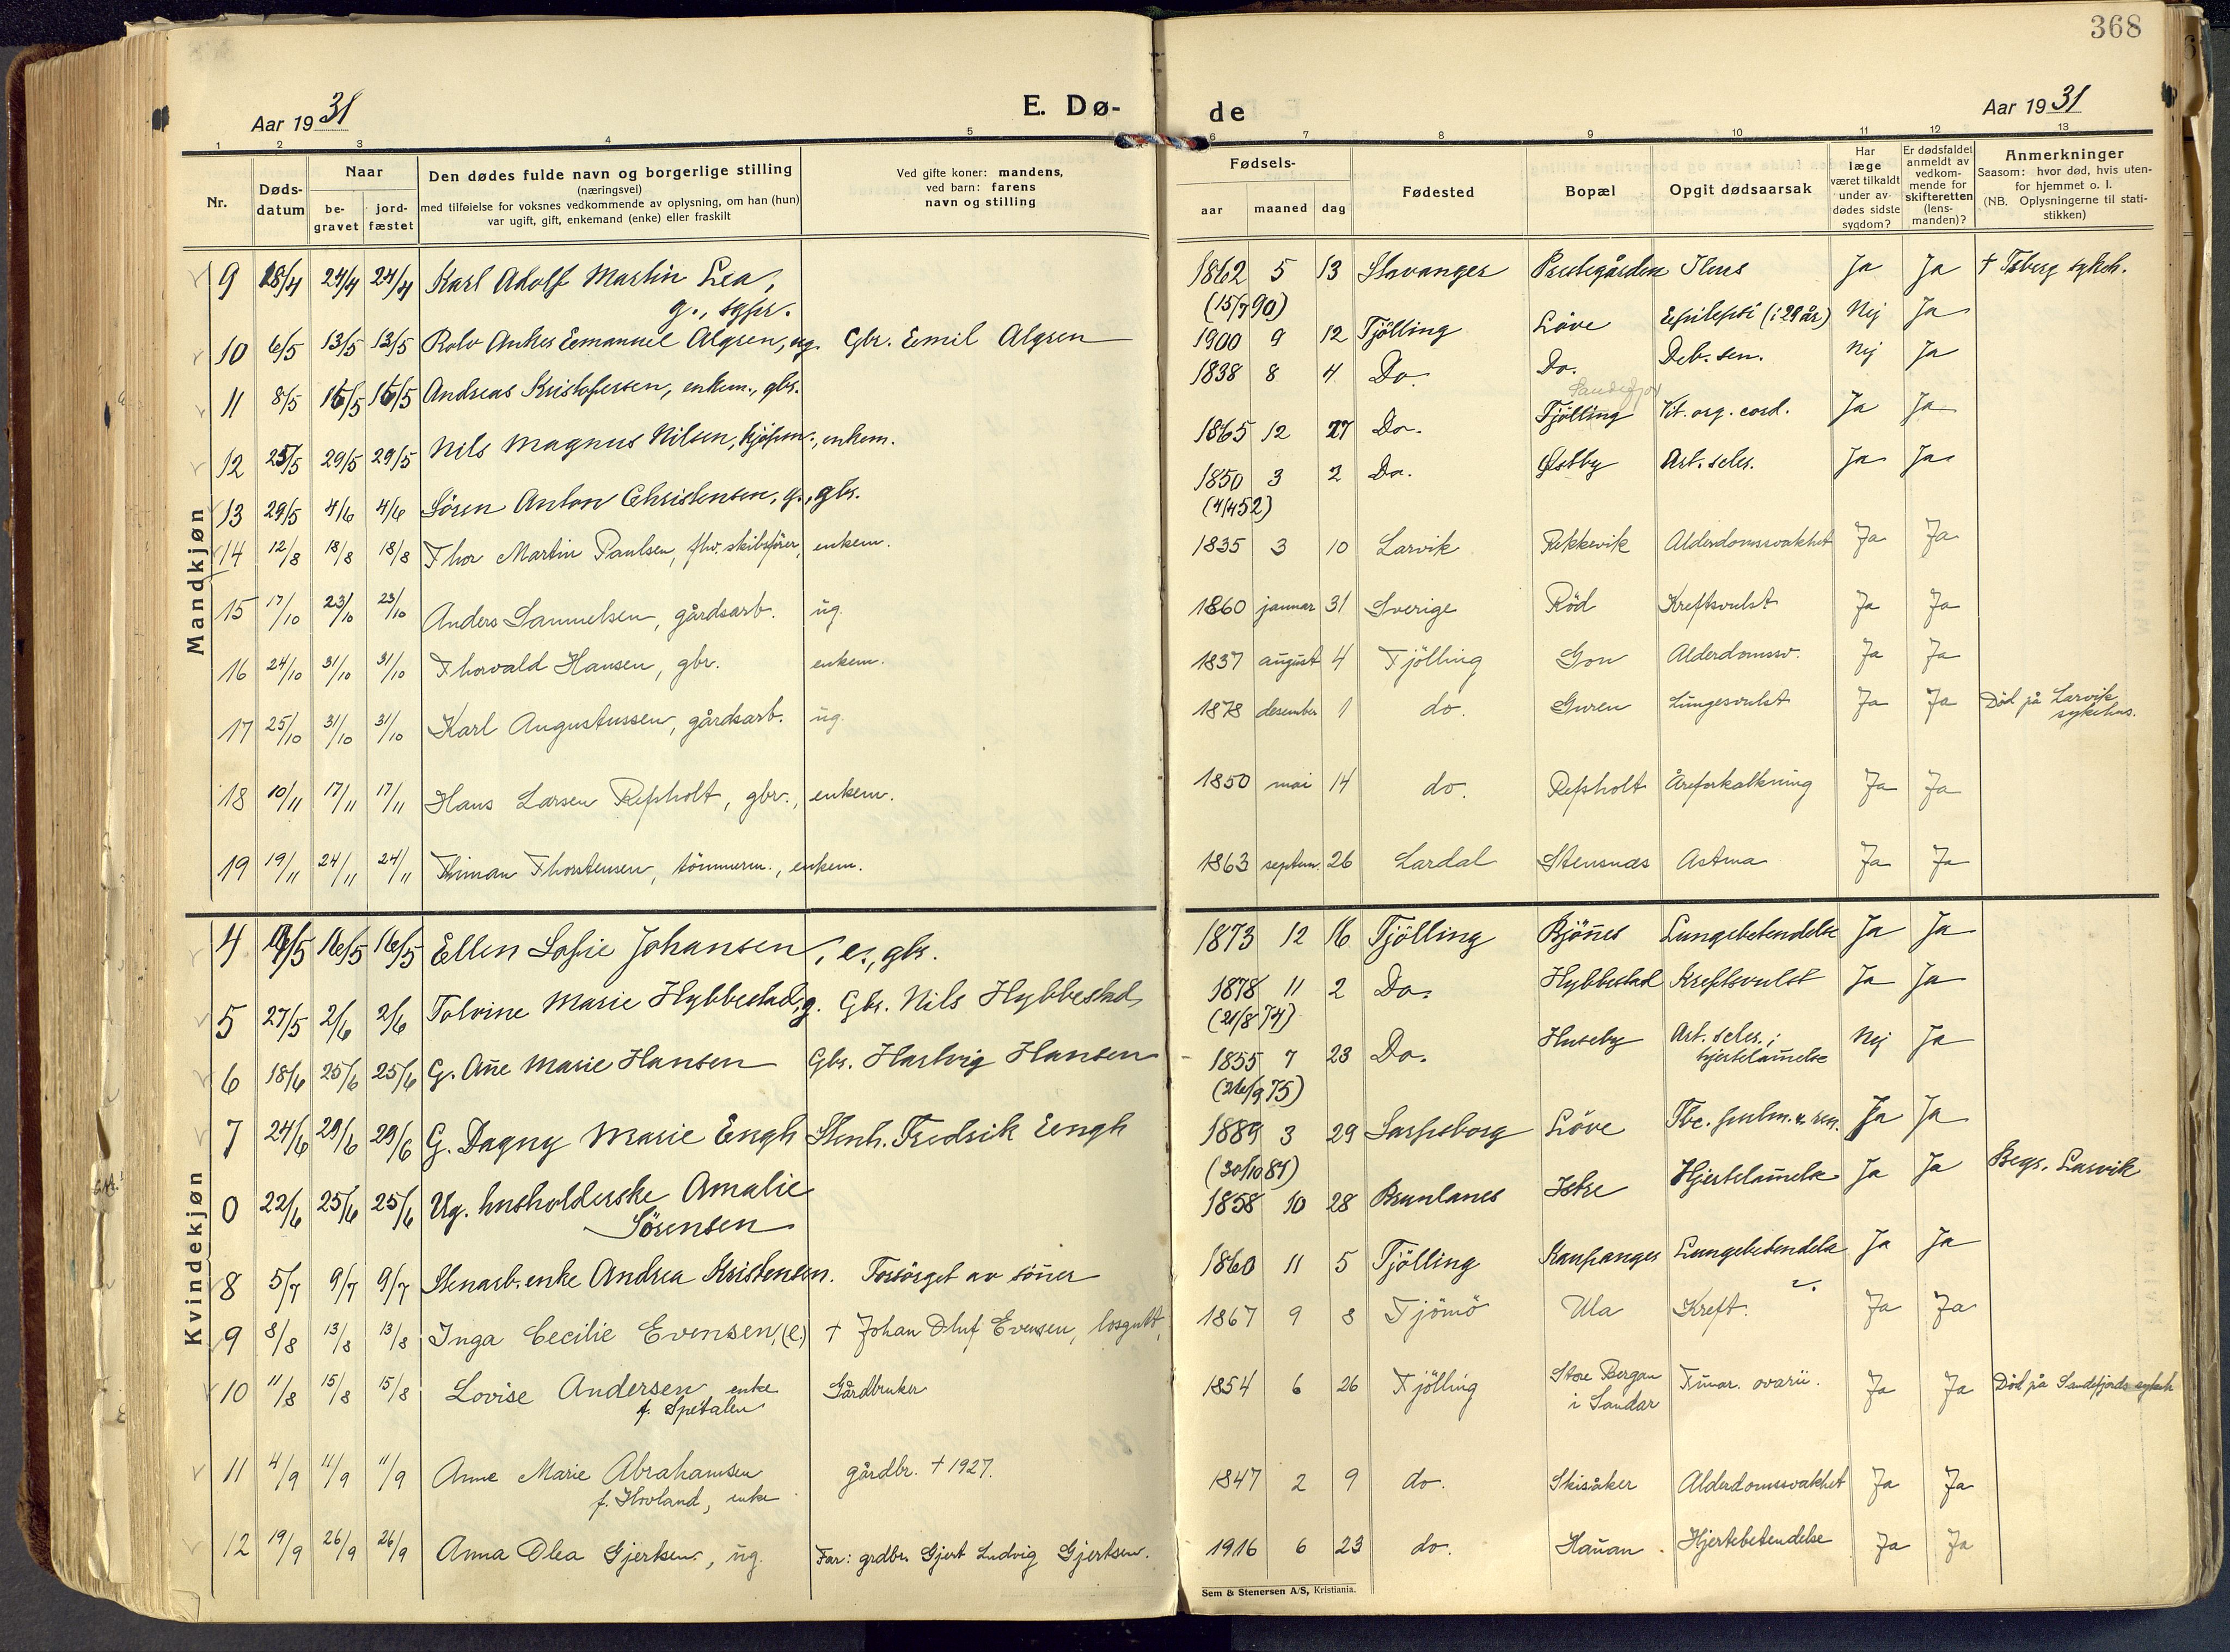 368
Aar 1931
E. Dø-
de
Aar 1931
1 2 3 4 5 6 7 8 9 10 11 12 13
Nr.
Døds-
datum
Naar
be-
gravet
jord-
fæstet
Den dødes fulde navn og borgerlige stilling
(næringsvei)
med tilføielse for voksnes vedkommende av oplysning, om han (hun)
var ugift, gift, enkemand (enke) eller fraskilt
Ved gifte koner: mandens,
ved barn: farens
navn og stilling
Fødsels-
aar
maaned
dag
Fødested
Bopæl
Opgit dødsaarsak
Har
læge
været tilkaldt
under av-
dødes sidste
sygdom?
Er dødsfaldet
anmeldt av
vedkom-
mende for
skifteretten
(lens-
manden)?
Anmerkninger
Saasom: hvor død, hvis uten-
for hjemmet o. l.
(NB. Oplysningerne til stati-
stikken)
Mandkjøn
9 18/4 24/4 24/4 Karl Adolf Martin Lea, 1862 5 13 Stavanger Prestegården Ileus Ja Ja † Tsberg sykeh.
g., sgpr. (15/7 90)
10 6/5 13/5 13/5 Rolv Anker Eemanuel Algren, ug. Gbr. Emil Algren 1900 9 12 Tjölling Löve Epilepsi (i 29 år) Nej Ja
11 8/5 15/5 15/5 Andreas Kristofersen, enkem., gbr. 1838 8 4 Do. Do. Deb. sen. Nej Ja
Sandefjord
12 25/5 29/5 29/5 Nils Magnus Nilsen, kjöpm., enkem. 1865 12 27 Do. Tjölling Vit. org. cord. Ja Ja
13 29/5 4/6 4/6 Sören Anton Christensen, g., gbr. 1850 3 2 Do. Østby Art. scler. Ja Ja
(4/4 52)
14 12/8 18/8 18/8 Thor Martin Paulsen, fhv. skibsfører, enkem. 1835 3 10 Larvik Rekkevik Alderdomssvakhet Ja Ja
15 17/10 23/10 23/10 Anders Samuelsen, gårdsarb. ug. 1860 januar 31 Sverige Röd Kreftsvulst Ja Ja
16 24/10 31/10 31/10 Thorvald Hansen, gbr. enkem. 1837 august 4 Tjölling Gon Alderdomssv. Ja Ja
17 25/10 31/10 31/10 Karl Augustussen, gårdsarb. ug. 1878 desember 1 do. Guren Lungesvulst Ja Ja Död på Larvik
sykehus.
18 10/11 17/11 17/11 Hans Larsen Refsholt, gbr., enkem. 1850 mai 14 do. Refsholt Åreforkalkning Ja Ja
19 19/11 24/11 24/11 Thorstensen, tömmerm., enkem. 1863 septem. 26 Lardal Stensnæs Astma Ja Ja
Kvindekjøn
4 16/5 16/5 Ellen Sofie Johansen, e., gbr. 1873 12 16 Tjölling Bjönnes Lungebetendelse Ja Ja
5 27/5 2/6 2/6 Tolvine Marie Hybbestad, g. Gbr. Nils Hybbestad 1878 11 2 Do. Hybbestad Kreftsvulst Ja Ja
(21/8 74)
6 18/6 25/6 25/6 G. Ane Marie Hansen Gbr. Hartvig Hansen 1855 7 23 Do. Huseby Art. scler.; Nej Ja
hjertelamelse
(26/9 75)
7 24/6 29/6 29/6 G. Dagny Marie Eengh Stenh. Fredrik Eengh 1889 3 29 Sarpsborg Löve Tbc. pulm. & ren. Ja Ja
(30/10 87)
0 22/6 25/6 25/6 Ug. husholderske Amalie 1858 10 28 Brunlanes Istre Hjertelamelse Ja Ja Begr. Larvik
Sörensen
8 5/7 9/7 9/7 Stenarb. enke Andrea Kristensen. Forsörget av söner 1860 11 5 Tjölling Kaupanger Lungebetendelse Ja Ja
9 8/8 13/8 13/8 Inga Cecilie Evensen, (e.) † Johan Oluf Evensen, losgutt, 1867 9 8 Tjömö Ula Kreft. Ja Ja
10 11/8 15/8 15/8 Lovise Andersen, enke Gårdbruker 1854 6 26 Tjölling Store Bergan Tumor. ovarii. Ja Ja Död på Sandefjords sykeh
f. Spetalen i Sandar
11 4/9 11/9 11/9 Anne Marie Abrahamsen gårdbr. † 1927. 1847 2 9 do. Skisåker Alderdomssvakhet Ja Ja
f. Hovland, enke
12 19/9 26/9 26/9 Anna Olea Gjertsen, ug. Far: grdbr. Gjert Ludvig Gjertsen. 1916 6 23 do. Hauan Hjertebetendelse Ja Ja
Sem & Stenersen A/S, Kristiania.